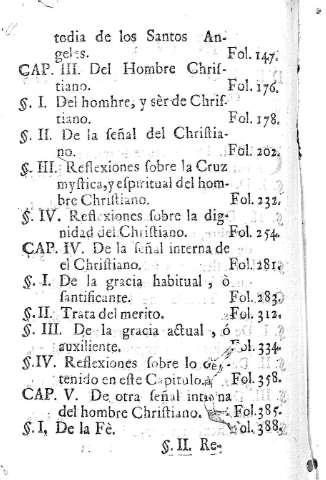 todia de los Santos An-
geles. Fol. 147.
CAP. III. Del Hombre Chriſ-
tiano. Fol. 176.
§. I. Del hombre, y sèr de Chriſ-
tiano. Fol. 178.
§. II. De la ſeñal del Chriſtia-
no. Fol. 202.
§. III. Reflexiones ſobre la Cruz
myſtica, y eſpiritual del hom-
bre Chriſtiano. Fol. 232.
§. IV. Reflexiones ſobre la dig-
nidad del Chriſtiano. Fol. 254.
CAP. IV. De la ſeñal interna de
el Chriſtiano. Fol. 281.
§. I. De la gracia habitual, ò
ſantificante. Fol. 283.
§. II. Trata del merito. Fol. 312.
§. III. De la gracia actual, ó
auxiliente. Fol. 334.
§. IV. Reflexiones ſobre lo con-
tenido en eſte Capitulo. Fol. 358.
CAP. V. De otra ſeñal interna
del hombre Chriſtiano. Fol. 385.
§. I, De la Fè. Fol. 388.
§. II. Re-